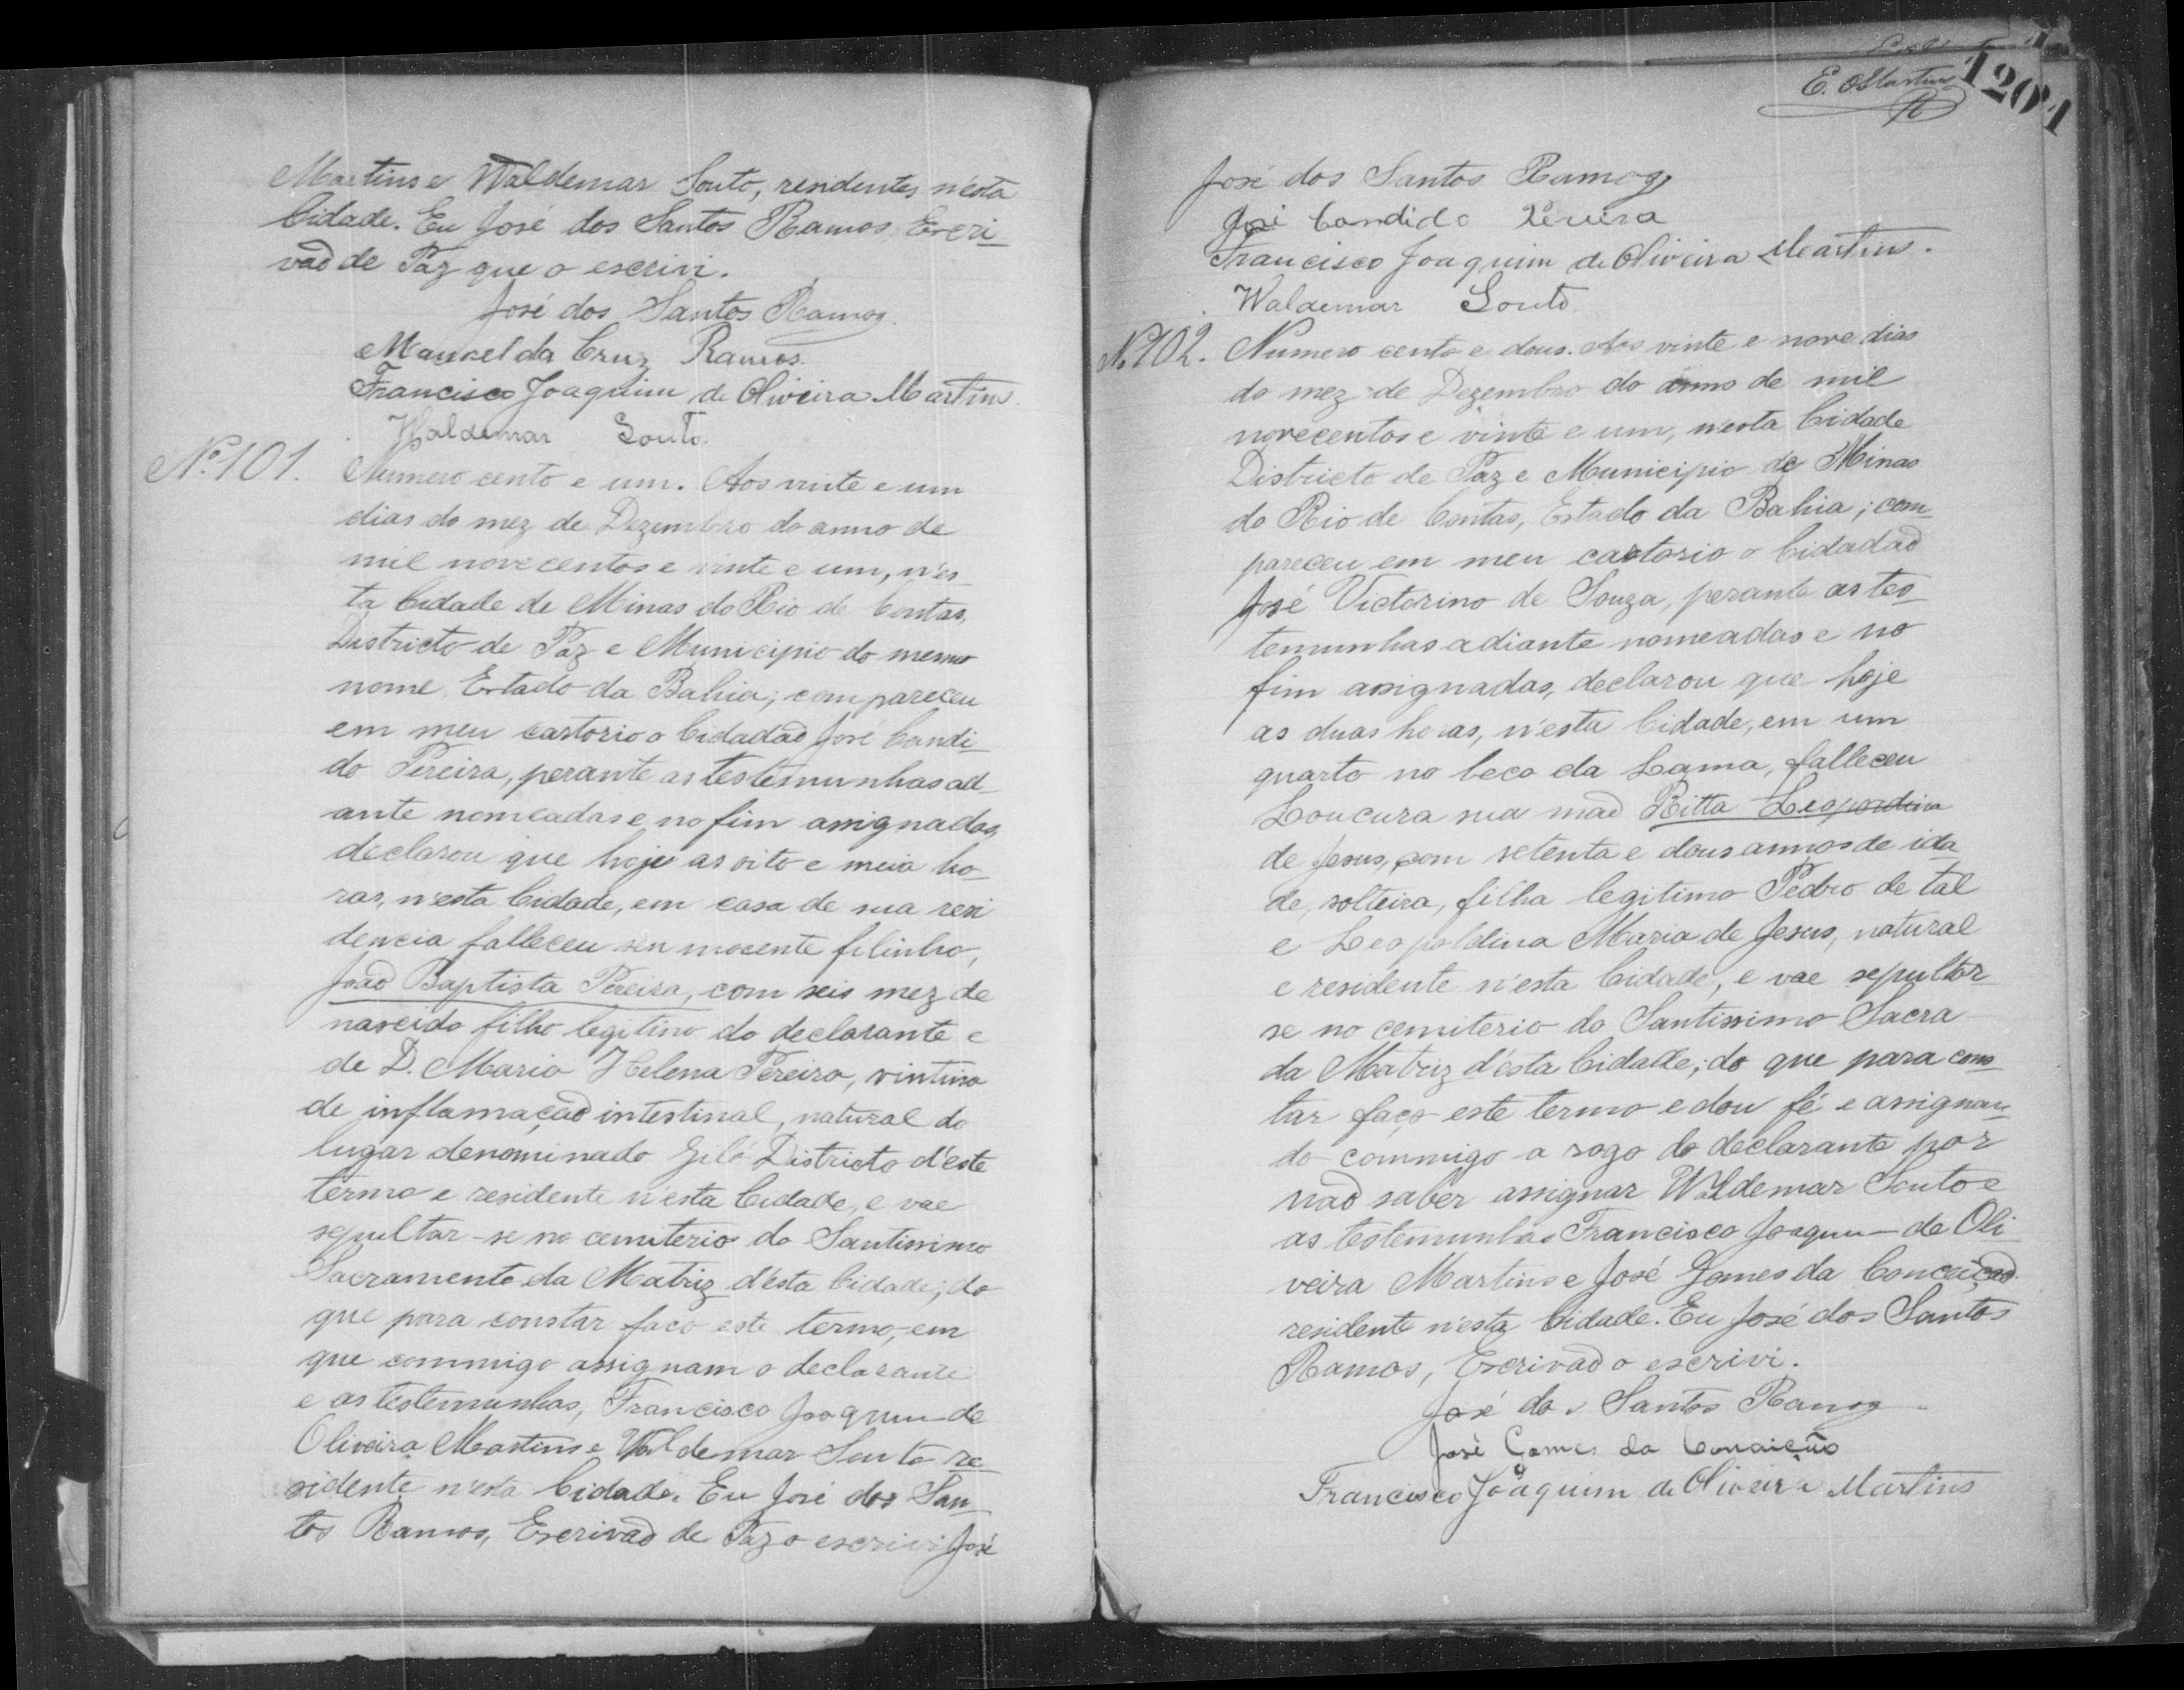 Martins e Waldemar Souto, residentes n'esta
Cidade. Eu José dos Santos Ramos Escri-
vaõ de Paz que o escrivi.
José dos Santos Ramos
Manoel da Cruz Ramos.
Francisco Joaquim de Oliveira Martins.
Waldemar Souto.
Nº 101. Numero cento e um. Aos vinte e um
dias do mez de Dezembro do anno de
mil novecentos e vinte e um, n'es-
ta Cidade de Minas do Rio de Contas,
Districto de Paz e Municipio do mesmo
nome, Estado da Bahia; compareceu
em meu cartorio o Cidadaõ José Candi-
do Pereira, perante as testemunhas adi-
ante nomeadas e no fim assignadas,
declarou que hoje as oito e meia ho-
ras, n'esta Cidade, em casa de sua resi
dencia falleceu seu inocente filinho,
Joaõ Baptista Pereira, com seis mez de
nascido filho legitimo do declarante e
de D. Maria Helena Pereira,
de inflamaçaõ intestinal, natural do
lugar denominado Giló Districto d'este
termo e residente n'esta Cidade, e vae
sepultar-se no cemiterio do Santissimo
Sacramento da Matriz d'esta Cidade; do
que para constar faço este termo, em
que commigo assignam o declarante
e as testemunhas, Francisco Joaquim de
Oliveira Martins e Waldemar Souto re-
sidente n'esta Cidade. Eu José dos San-
tos Ramos, Escrivaõ de Paz o escrivi José
E. Martins
R
1201
José dos Santos Ramos
José Candido Pereira
Francisco Joaquim de Oliveira Martins.
Waldemar Souto.
Nº 102. Numero cento e dous. Aos vinte e nove dias
do mez de Dezembro do anno de mil
novecentos e vinte e um, n'esta Cidade
Districto de Paz e Municipio de Minas
do Rio de Contas, Estado da Bahia; com-
pareceu em meu cartorio o Cidadaõ
José Victorino de Souza, perante as tes-
temunhas adiante nomeadas e no
fim assignadas, declarou que hoje
as duas horas, n'esta Cidade, em um
quarto no beco da Lama, falleceu
Loucura sua maõ Ritta Leopordina
de Jesus, com setenta e dous annos de ida
de, solteira, filha legitima Pedro de tal
e Leopoldina Maria de Jesus, natural
e residente n'esta Cidade, e vae sepultar
se no cemiterio do Santissimo Sacra
da Matriz d'esta Cidade; do que para cons-
tar faço este termo e dou fé e assignan-
do commigo a rogo do declarante por
naõ saber assignar Waldemar Souto e
as testemunhas Francisco Joaquim de Oli
veira Martins e José Gomes da Conceiçaõ
residente n'esta Cidade. Eu José dos Santos
Ramos, Escrivaõ o escrivi.
José dos Santos Ramos
José Gomes da Conceição
Francisco Joaquim de Oliveira Martins